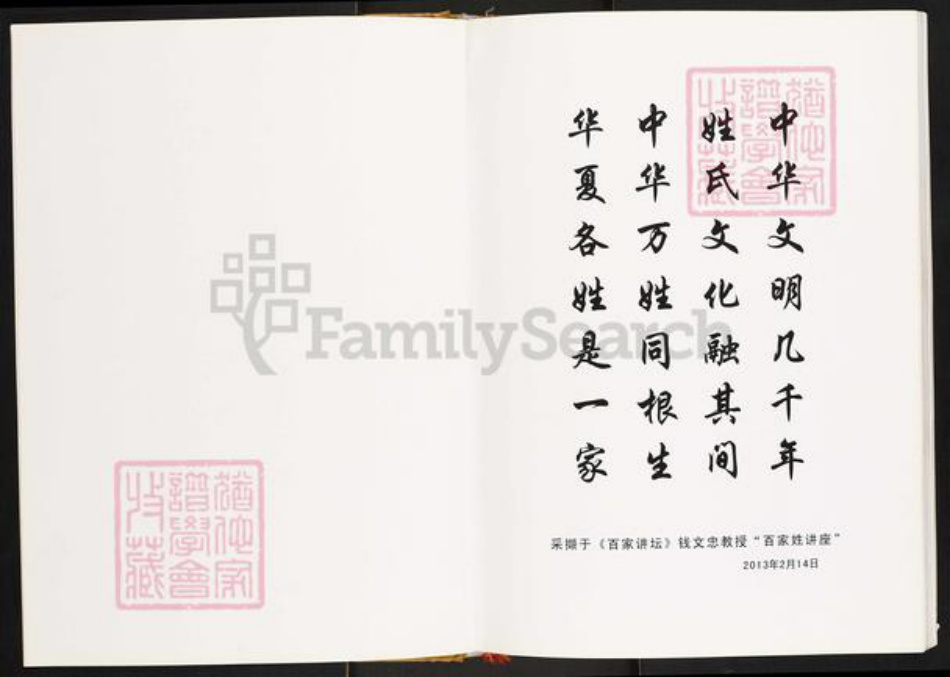 中华文明几千年
姓氏文化融其间
中华万姓同根生
华夏各姓是一家
采撷于《百家讲坛》钱文忠教授“百家姓讲座”
2013年2月14日
猶他家
譜學會
收藏
猶他家
譜學會
收藏
FamilySearch